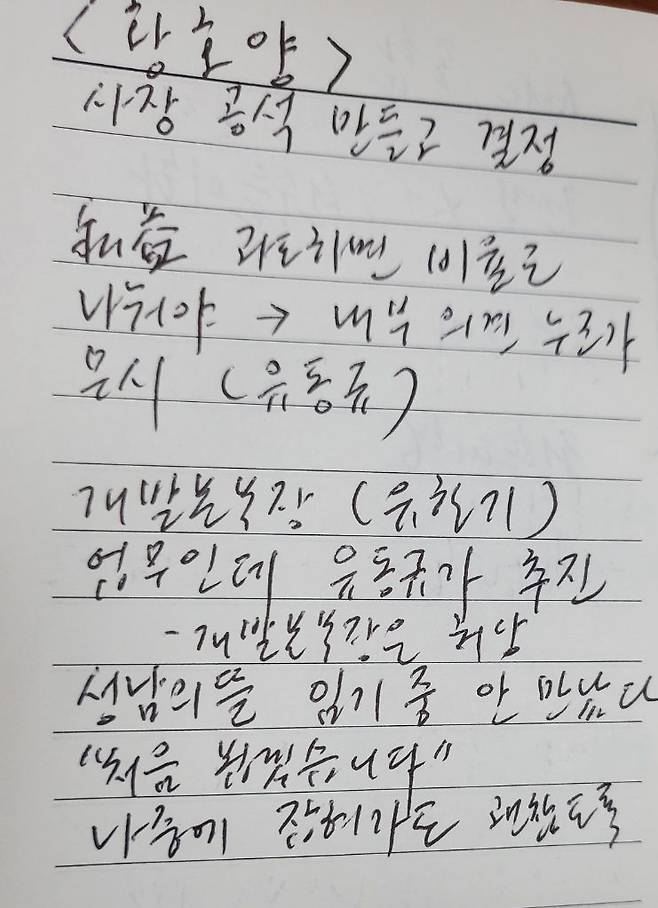 <황호양>
사장 공석 만들고 결정
利益 과도하면 비율로
나눠야 → 내부 의견 누군가
무시 (유동규)
개발본부장 (유한기)
업무인데 유동규가 추진
- 개발본부장은 허당
성남의뜰 임기 중 안 만났다
"처음 뵙겠습니다"
나중에 잡혀가도 괜찮도록